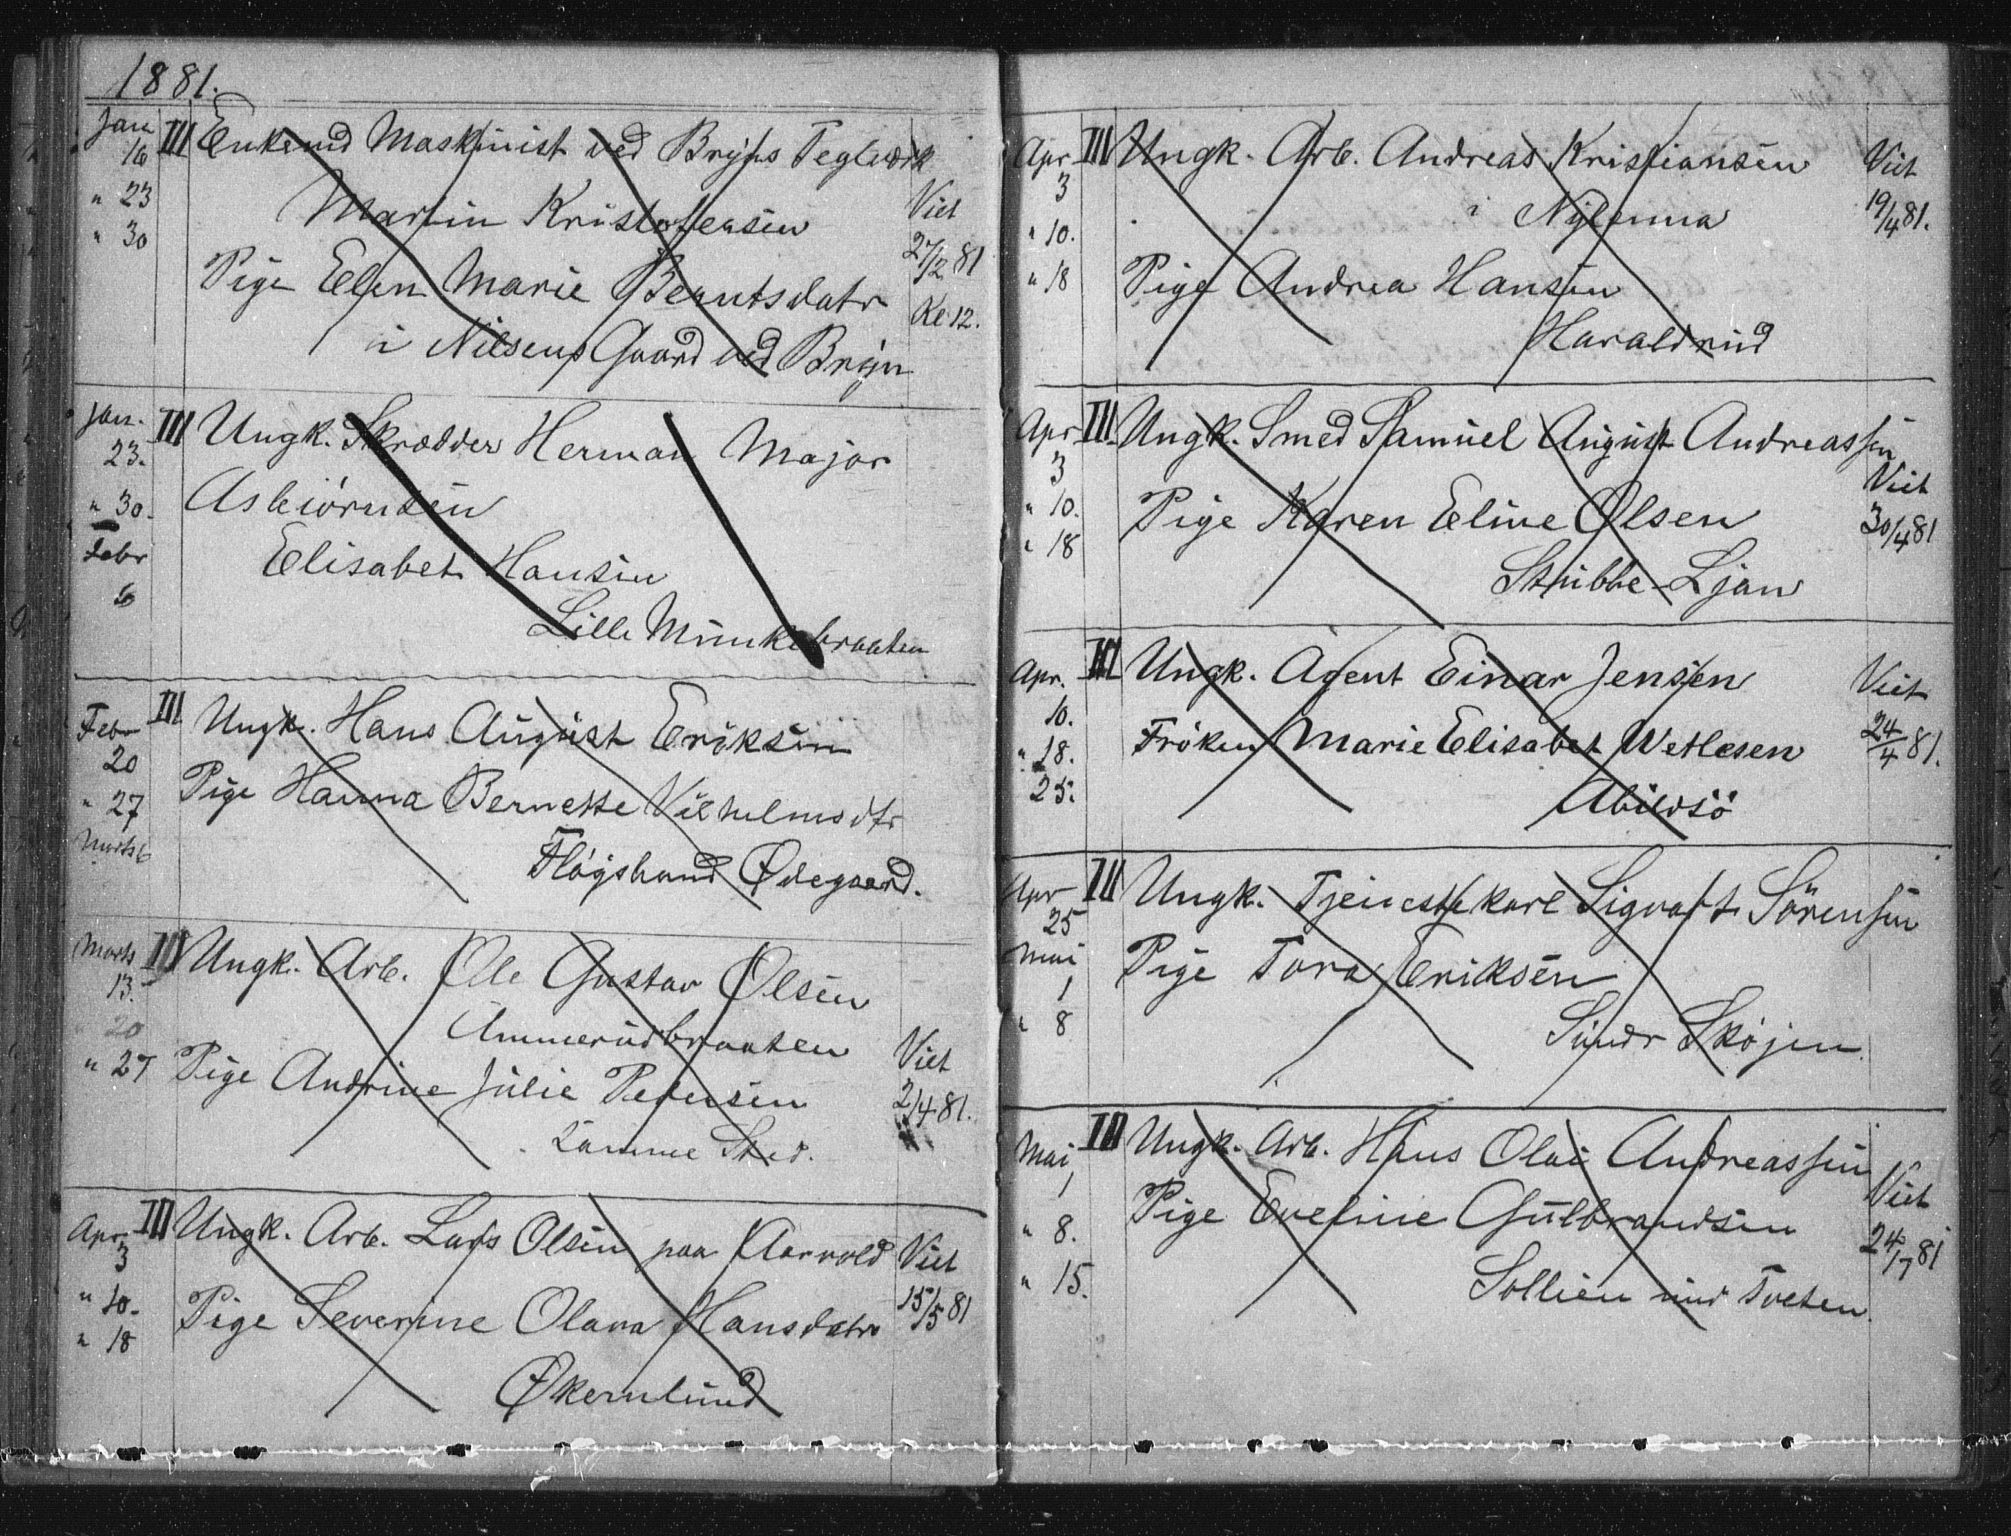 1881.
Jan 16 III Enkemd Maskinist ved Bryns Teglværk
" 23 Martin Kristofersen Viet
" 30 27/2 81
Pige Elen Marie Berntsdatr Kl 12.
i Nilsens Gaard ved Bryn
Jan. 23. III Ungk. Skrædder Herman Major
" 30. Asbiørnsen
Febr 6 Elisabet Hansen
Lille Munkebraaten
Febr 20 III Ungk. Hans August Eriksen
" 27 Pige Hanna Bernette Vilhelmsdtr
Marts 6 Fløgshand Ødegaard.
Marts 13. III Ungk. Arb. Ole Gustav Olsen
20 Ammerudbraaten
" 27 Pige Andrine Julie Pedersen Viet 2/4 81.
Samme Sted.
Apr. 3 III Ungk. Arb. Lars Olsen paa Aarvold Viet
" 10. Pige Severine Olava Hansdatr 15/5 81
" 18 Økernlund
Apr 3 III Ungk. Arb. Andreas Kristiansen Viet
" 10. i Nylenna 19/4 81.
" 18 Pige Andrea Hansen
Haraldrud
Apr 3 III Ungk. Smed Samuel August Andreassen
" 10. Pige Karen Eline Olsen Viet 30/4 81
" 18 Stubbe-Ljan
Apr. 10. III Ungk. Agent Einar Jensen Viet
" 18. Frøken Marie Elisabet Wetlesen 24/4 81.
25. Abildsø
Apr 25 III Ungk. Tjenestekarl Sigvart Sørensen
Mai 1 Pige Tora Eriksen
" 8 Søndr Skøjen
Mai 1 III Ungk. Arb. Hans Olai Andreassen
" 8. Pige Eveline Gulbrandsen Viet 24/7 81
" 15. Sollien und Tveten.